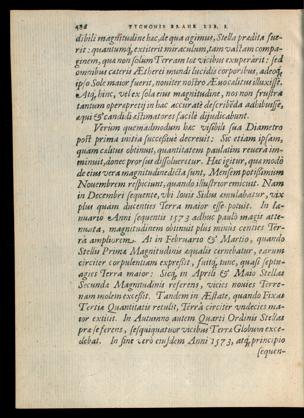 486 TYCHONIS BRAHE LIB. I.
dibili magnitudine hac, de qua agimus, Stella prædita fue-
rit: quantumq; extiterit miraculum, tam vastam compa-
ginem, quæ non solum Terram tot vicibus exuperârit: sed
omnibus cæteris Ætherei mundi lucidis corporibus, adeoq;
ipso Sole maior fuerit, noviter nostro Ævo calitus illuxisse.
Atq; hinc, vel ex sola eius magnitudine, nos non frustrà
tantum operæ pretij in hac accuratè describēda adhibuisse,
æqui & candidi æstimatores facilè dijudicabunt.
Verùm quemadmodum hæc visibili sua Diametro
post prima initia successivè decrevit: Sic etiam ipsam,
quam calitus obtinuit, quantitatem paulatim revera im-
minuit, donec prorsus dissolveretur. Hæc igitur, quæ modò
de eius vera magnitudine dicta sunt, Mensem potissimùm
Novembrem respiciunt, quando illustrior emicuit. Nam
in Decembri sequente, vbi Iovis Sidus æmulabatur, vix
plus quàm ducenties Terra maior esse potuit. In Ia-
nuario Anni sequentis 1573 adhuc paulò magis atte-
nuata, magnitudinem obtinuit plus minùs centies Ter-
râ ampliorem. At in Februario & Martio, quando
Stellis Primæ Magnitudinis æqualis cernebatur, earum
circiter corpulentiam expressit, fuitq; tunc, quasi septu-
agies Terra maior: Sicq; in Aprili & Maio Stellas
Secundæ Magnitudinis referens, vicies novies Terre-
nam molem excessit. Tandem in Æstate, quando Fixas
Tertiæ Quantitatis retulit, Terrâ circiter vndecies ma-
ior extitit. In Autumno autem Quarti Ordinis Stellas
præ se ferens, sesquiquatuor vicibus Terræ Globum exce-
debat. In fine verò eiusdem Anni 1573, atq; principio
sequen-